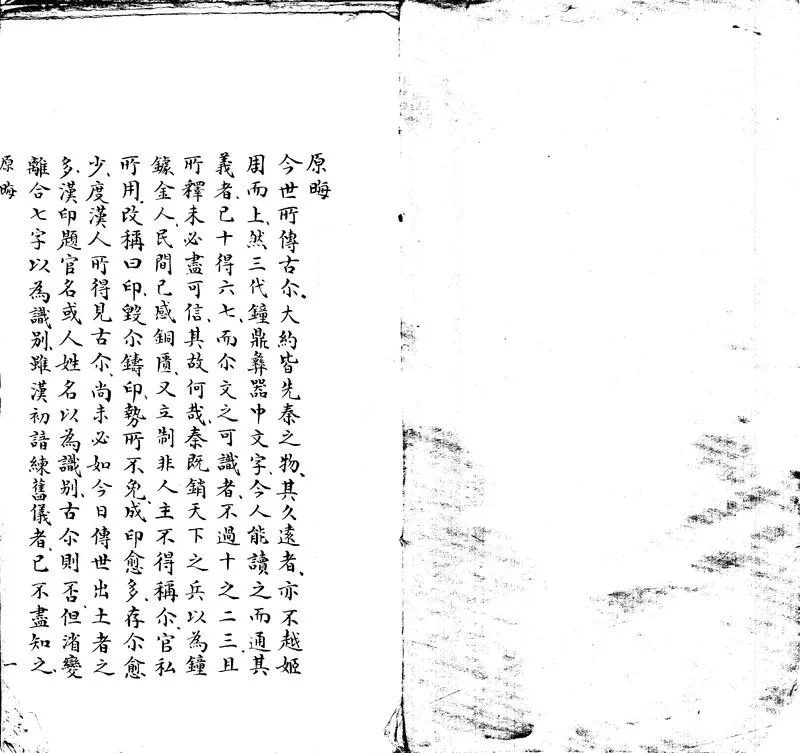 原晦
今世所傳古尒、大約皆先秦之物、其久遠者、亦不越姬
周而上、然三代鐘鼎彝器中文字、今人能讀之而通其
義者、已十得六七、而尒文之可識者、不過十之二三且
所釋未必盡可信、其故何哉、秦既銷天下之兵以為鐘
鐻金人、民間已感銅匱、又立制非人主不得稱尒、官私
所用、改稱曰印、毀尒鑄印、勢所不免、成印愈多、存尒愈
少、度漢人所得見古尒、尚未必如今日傳世出土者之
多、漢印題官名或人姓名以為識別、古尒則否、但渻變
離合七字以為識別、雖漢初諳練舊儀者、已不盡知之、
原晦
一